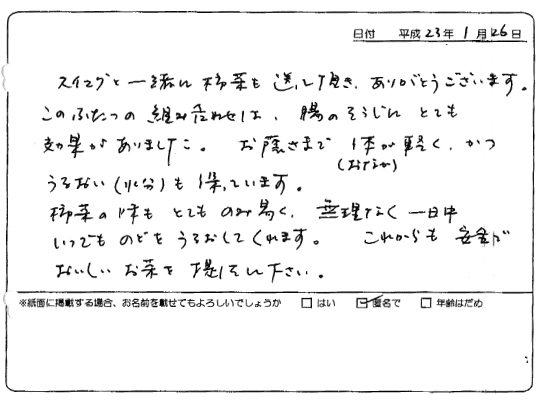 日付 平成 23年 1月 26日
スイマグと一緒に柿茶も送して頂き、ありがとうございます。
このふたつの組み合わせは、腸のそうじに とても
効果が ありました。 お蔭さまで 体が軽く、かつ
(おなか)
うるおい(水分)も保っています。
柿茶の 体も とても のみ易く、無理なく 一日中
いつでも のどを うるおしてくれます。 これからも 安全で
おいしい お茶を 提供して下さい。
※紙面に掲載する場合、お名前を載せてもよろしいでしょうか □ はい ☑ 匿名で □ 年齢はだめ